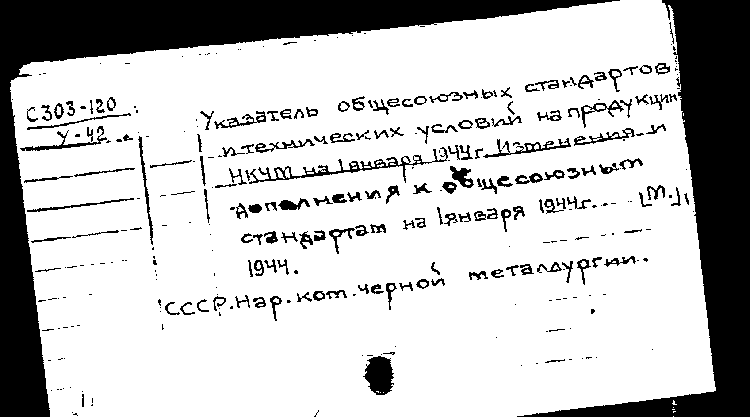 С303-120
У-42
Указатель общесоюзных стандартов
и технических условий на продукции
НКЧМ на 1 января 1944 г. Изменения и
дополнения к общесоюзным
стандартам на 1 января 1944 г. [М.],
1944.
СССР. Нар. ком. черной металлургии.